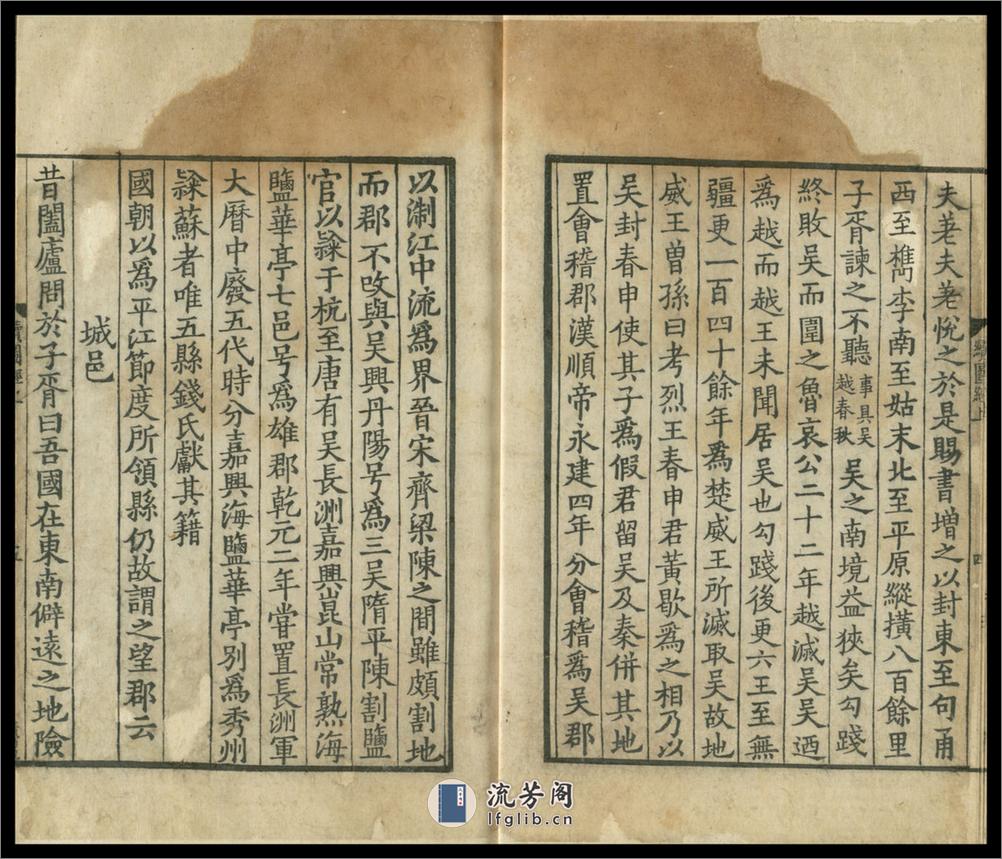 夫荖夫荖悅之於是賜書增之以封東至句甬
西至檇李南至姑末北至平原縱橫八百餘里
子胥諫之不聽事具吳越春秋吳之南境益狹矣勾踐
終敗吳而圍之魯哀公二十二年越滅吳吳迺
爲越而越王未聞居吳也勾踐後更六王至無
疆更一百四十餘年爲楚威王所滅取吳故地
威王曾孫曰考烈王春申君黃歇爲之相乃以
吳封春申使其子爲假君留吳及秦併其地
置會稽郡漢順帝永建四年分會稽爲吳郡
續圖經上
四
以淛江中流爲界晉宋齊梁陳之間雖頗割地
而郡不改與吳興丹陽号爲三吳隋平陳割鹽
官以隸于杭至唐有吳長洲嘉興崑山常熟海
鹽華亭七邑号爲雄郡乾元二年嘗置長洲軍
大曆中廢五代時分嘉興海鹽華亭別爲秀州
隸蘇者唯五縣錢氏獻其籍
國朝以爲平江節度所領縣仍故謂之望郡云
城邑
昔闔廬問於子胥曰吾國在東南僻遠之地險
流芳阁
lfglib.cn